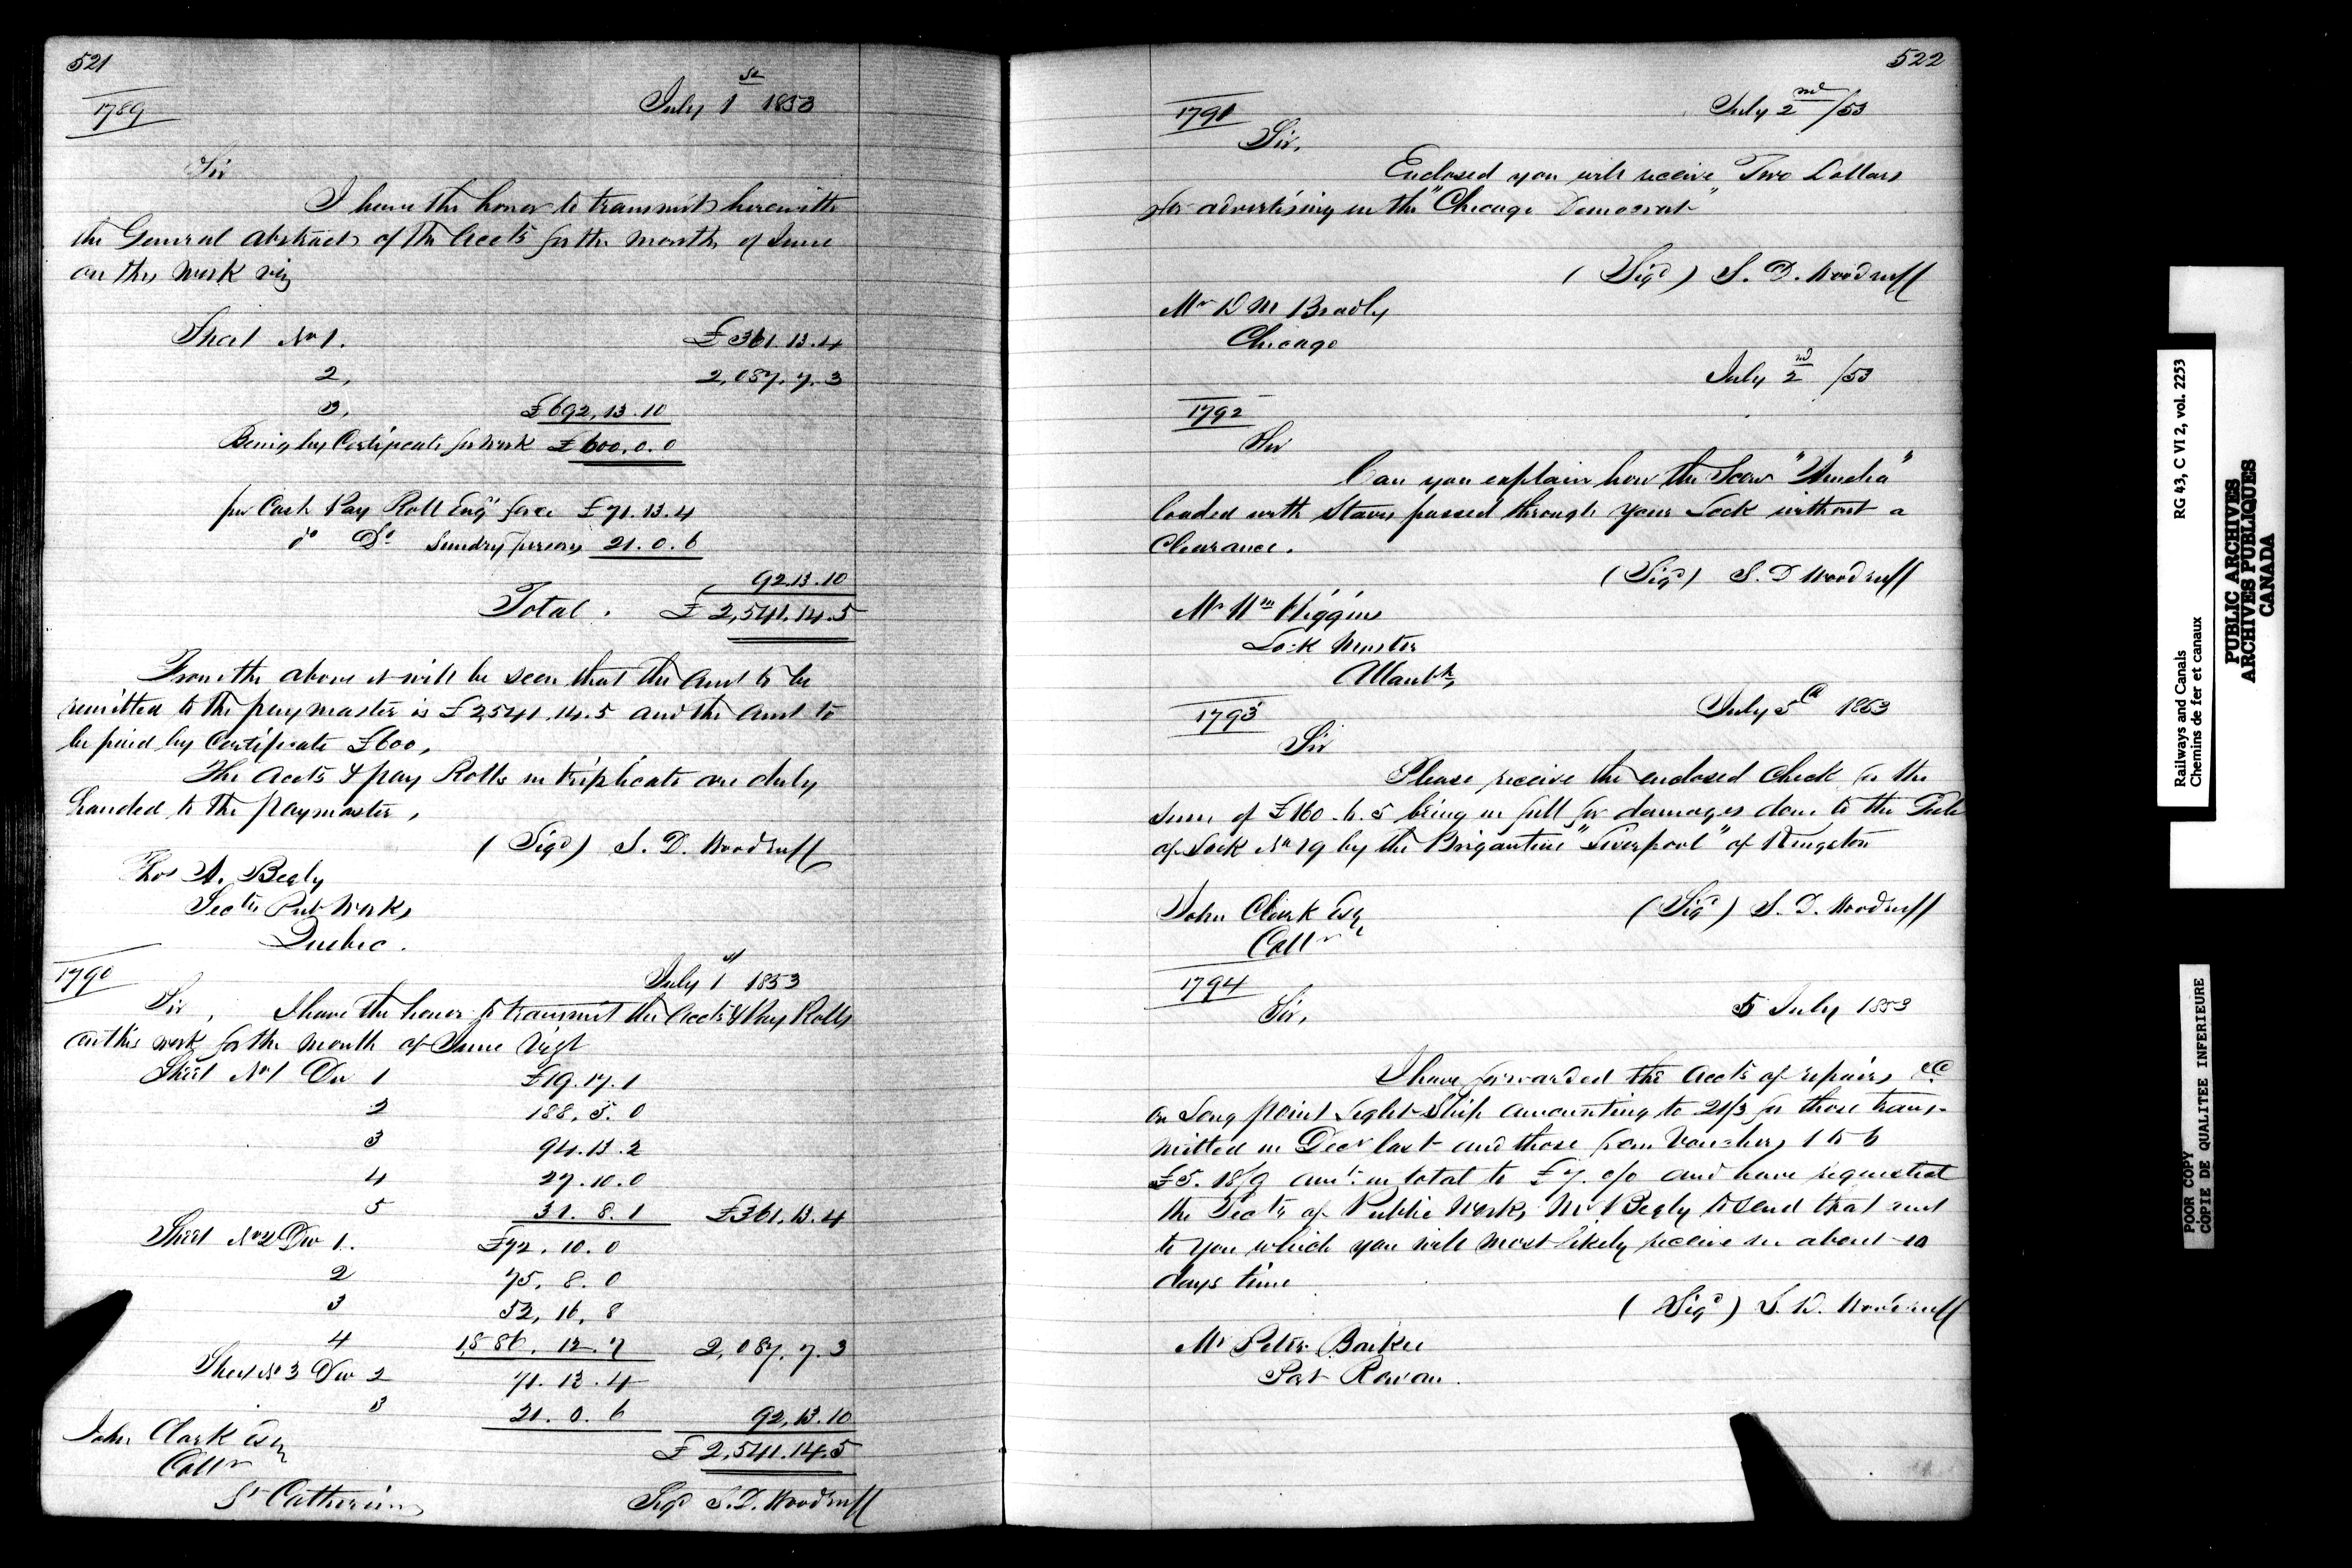 521
1789
July 1st 1853
Sir
I have the honor to transmit herewith
the General Abstract of the Accts for the month of June
on this work viz
Sheet No 1. £361.13.4
2, 2,087.7.3
3, £692,13.10
Being by Certificate for work £600.0.0
per Cash Pay Roll Engr force £71.13.4
do Do Sundry persons 21.0.6
92.13.10
Total. £2,541.14.5
From the above it will be seen that the Amt to be
remitted to the paymaster is £2,541.14.5 and the Amt to
be paid by Certificate £600,
The Accts & pay Rolls in triplicate are duly
handed to the paymaster,
(Sigd) S. D. Woodruff
Thos A. Begly
Secty Pub Works
Quebec.
1790
July 1st 1853
Sir, I have the honor to transmit the Accts & Pay Rolls
on this work for the month of June Vizt
Sheet No 1 Div 1 £19.17.1
2 188.5.0
3 94.13.2
4 27.10.0
5 31.8.1 £361.13.4
Sheet No 2 Div 1. £72.10.0
2 75.8.0
3 52,16,8
4 1,886.12.7 2,087.7.3
Sheet No 3 Div 2 71.13.4
3 21.0.6 92,13.10
£2,541.14.5
John Clark Esq
Collr
St Catherines
Sigd S.D. Woodruff
522
1791
July 2nd /53
Sir,
Enclosed you will receive Two Dollars
for advertising in the "Chicago Democrat"
(Sigd) S. D. Woodruff
Mr D M Bradly
Chicago
July 2nd /53
1792
Sir
Can you explain how the Scow "Amelia"
loaded with Staves passed through your Lock without a
Clearance.
(Sigd) S. D Woodruff
Mr Wm Higgins
Lock Master
Allanbh
1793
July 5th 1853
Sir
Please receive the enclosed Check for the
sum of £160.6.5 being in full for damages done to the Gate
of Lock No 19 by the Brigantine "Liverpool" of Kingston
(Sigd) S. D. Woodruff
John Clark Esq
Collr
1794
5 July 1853
Sir,
I have forwarded the Accts of repairs &c
on Long point Light-Ship amounting to 21/3 for those trans-
mitted in Decr last and those from Vouchers 1 to 6
£5.18/9 amt in total to £7.0/0 and have requested
the Secty of Public Works Mr Begly to send that amt
to you which you will most likely receive in about 10
days time
(Sigd) S. D. Woodruff
Mr Peter Barker
Port Rowan.
Railways and Canals RG 43, C VI 2, vol. 2253
Chemins de fer et canaux
PUBLIC ARCHIVES
ARCHIVES PUBLIQUES
CANADA
POOR COPY
COPIE DE QUALITEE INFERIEURE